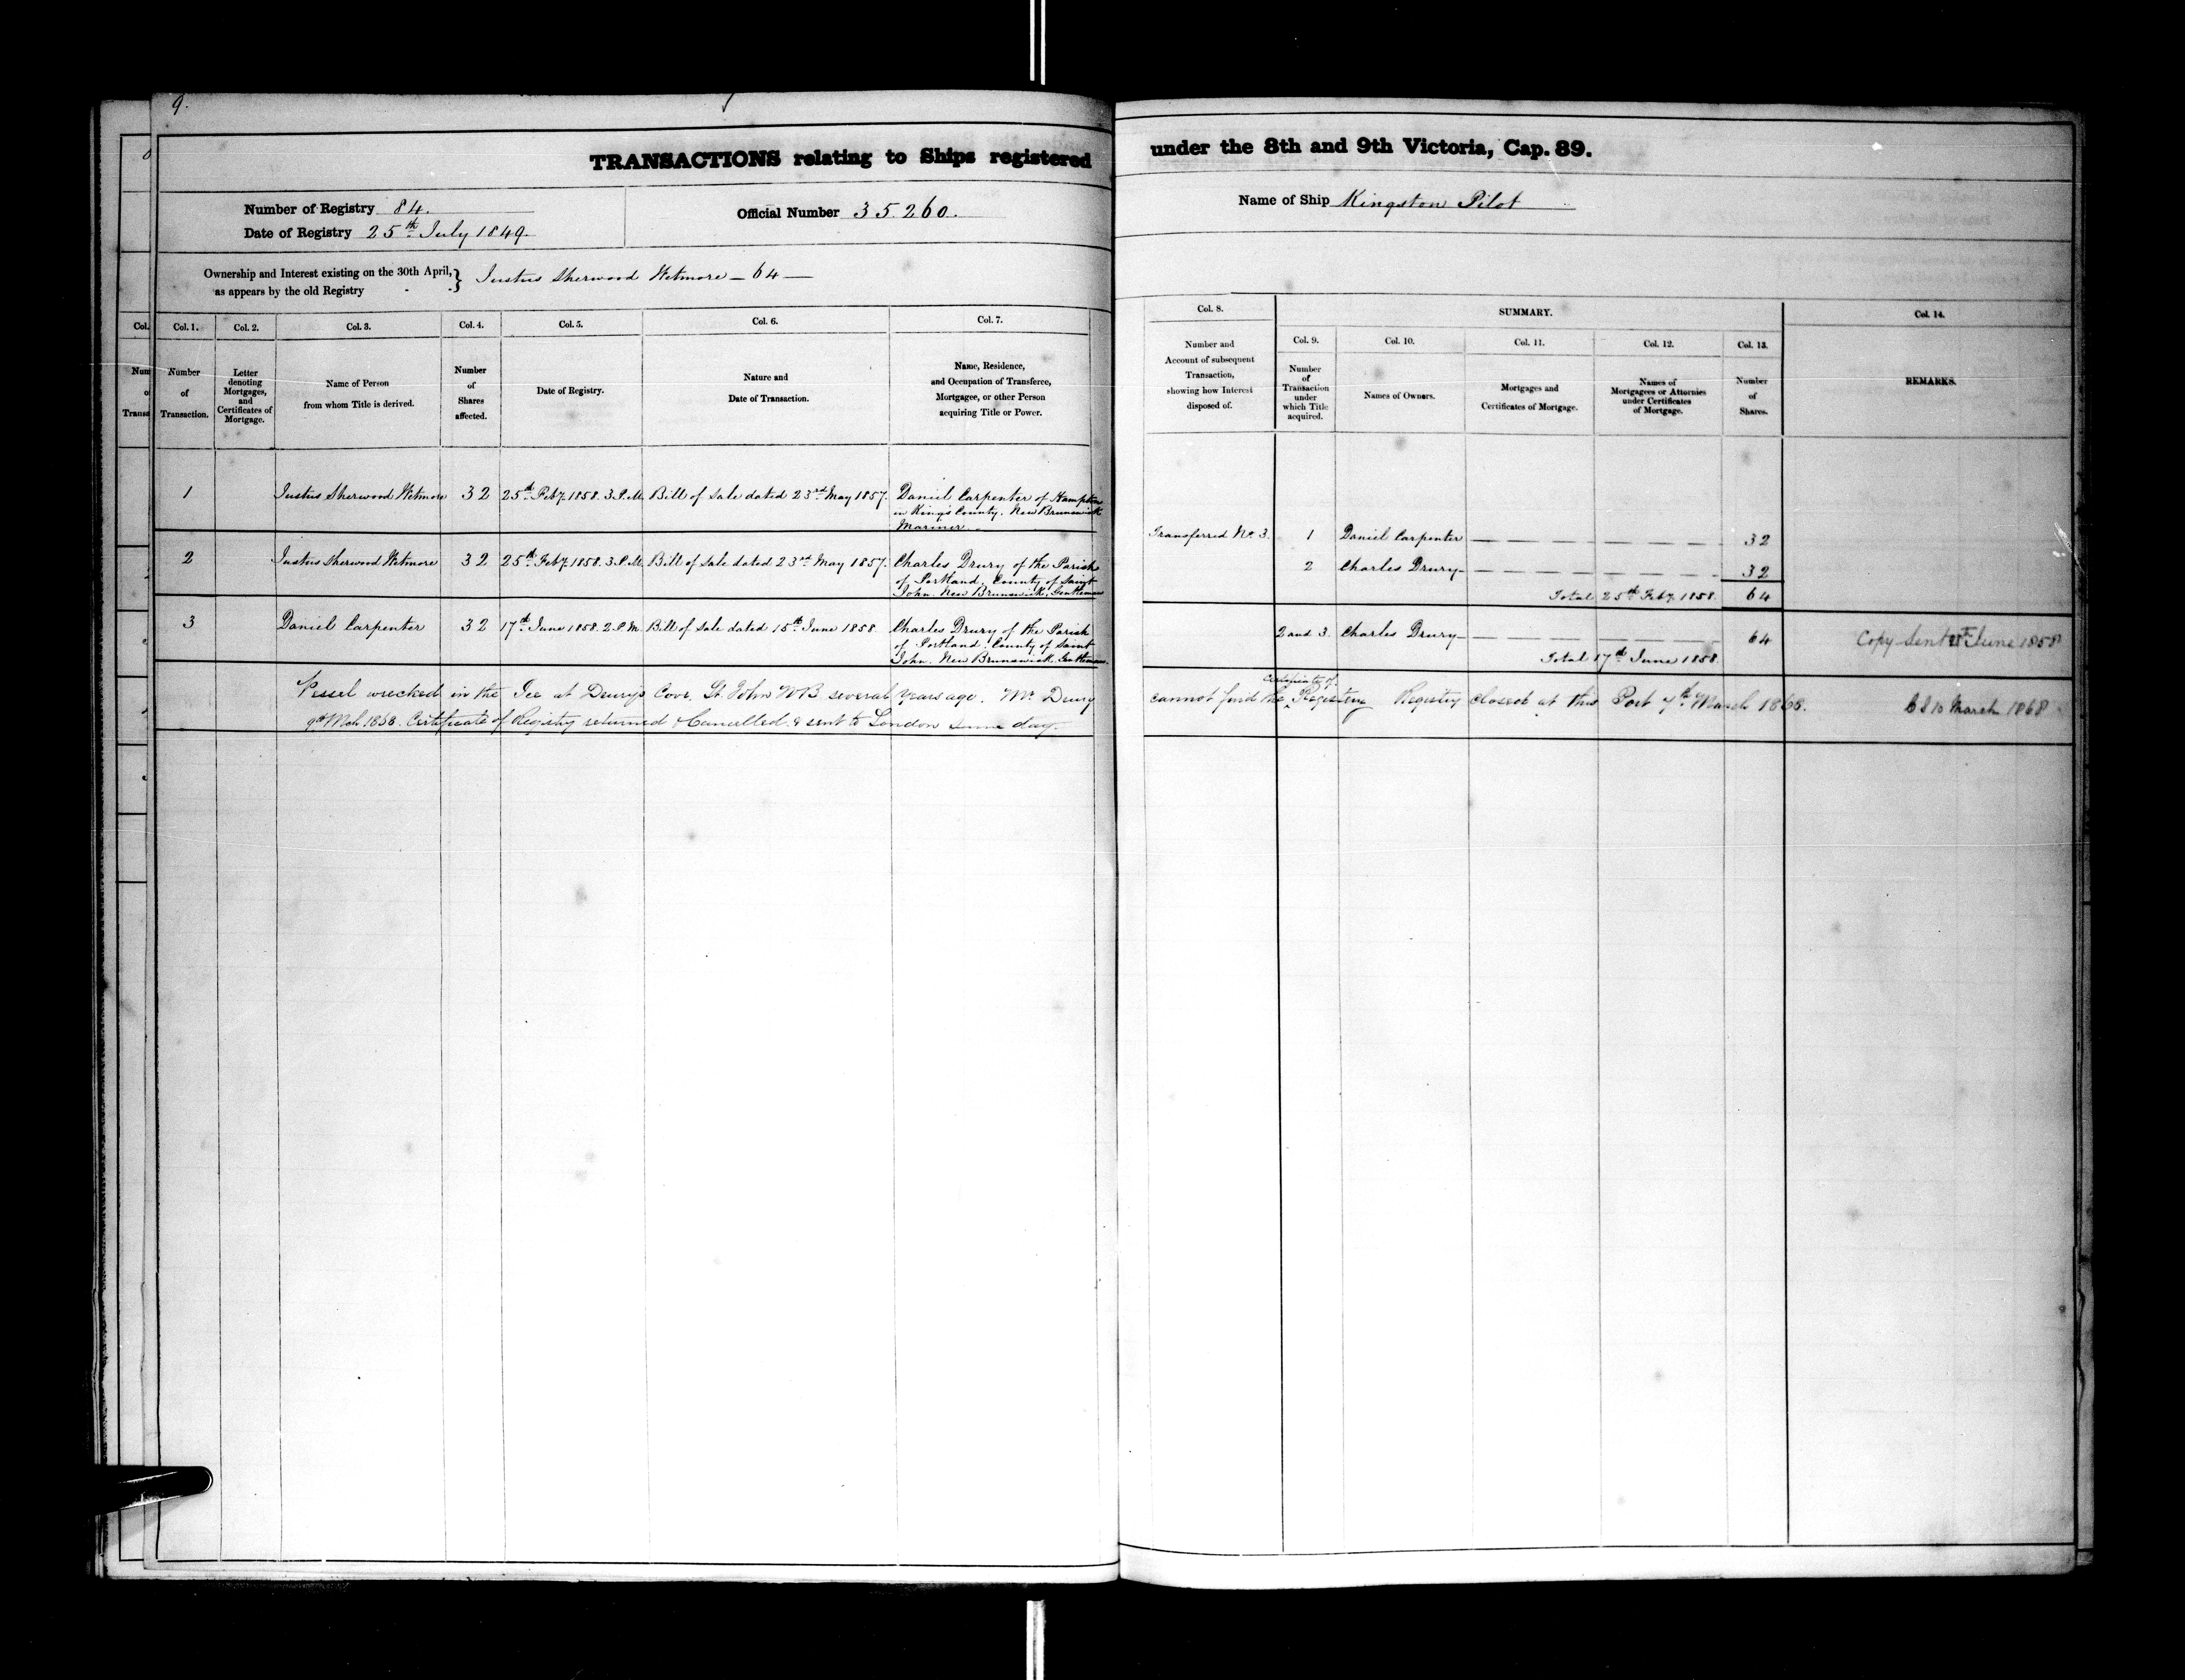 9.
TRANSACTIONS relating to Ships registered under the 8th and 9th Victoria, Cap. 89.
Number of Registry 84.
Date of Registry 25th July 1849.
Official Number 35260.
Name of Ship Kingston Pilot
Ownership and Interest existing on the 30th April, as appears by the old Registry } Justus Sherwood Wetmore — 64 —
Col. 1.
Number
of
Transaction.
Col. 2.
Letter
denoting
Mortgages,
and
Certificates of
Mortgage.
Col. 3.
Name of Person
from whom Title is derived.
Col. 4.
Number
of
Shares
affected.
Col. 5.
Date of Registry.
Col. 6.
Nature and
Date of Transaction.
Col. 7.
Name, Residence,
and Occupation of Transferee,
Mortgagee, or other Person
acquiring Title or Power.
Col. 8.
Number and
Account of subsequent
Transaction,
showing how Interest
disposed of.
SUMMARY.
Col. 9.
Number
of
Transaction
under
which Title
acquired.
Col. 10.
Names of Owners.
Col. 11.
Mortgages and
Certificates of Mortgage.
Col. 12.
Names of
Mortgagees or Attornies
under Certificates
of Mortgage.
Col. 13.
Number
of
Shares.
Col. 14.
REMARKS.
1 Justus Sherwood Wetmore 32 25th Feby. 1858. 3 P.M. Bill of Sale dated 23rd May 1857. Daniel Carpenter of Hampton
in King's County. New Brunswick
Mariner.
2 Justus Sherwood Wetmore 32 25th Feby. 1858. 3 P.M. Bill of Sale dated 23rd May 1857. Charles Drury of the Parish
of Portland. County of Saint
John. New Brunswick, Gentleman
3 Daniel Carpenter 32 17th June 1858. 2 P.M. Bill of Sale dated 15th June 1858. Charles Drury of the Parish
of Portland. County of Saint
John. New Brunswick, Gentleman.
Transferred No. 3. 1 Daniel Carpenter — — — — 32
2 Charles Drury — — — — 32
Total 25th Feby. 1858. 64
2 and 3. Charles Drury — — — — 64 Copy Sent June 1858
Total 17th June 1858.
Vessel wrecked in the Ice at Drury's Cove, St. John NB several years ago. Mr. Drury cannot find the Certificate of Registry Registry closed at this Port 7th March 1868. 10 March 1868
9th Mch 1868. Certificate of Registry returned & Cancelled. & sent to London same day.